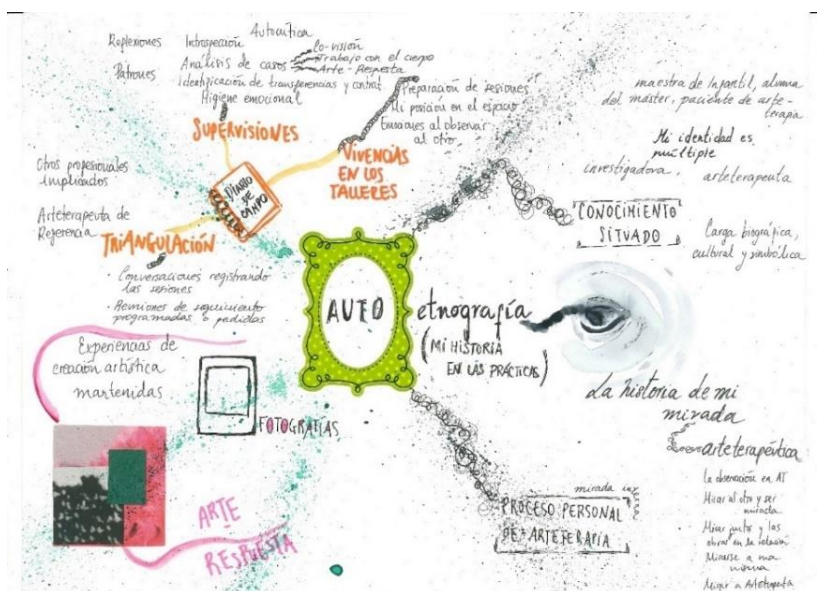 Autocrítica
Reflexiones Introspección
Patrones Análisis de casos
Co-visión
Trabajo con el cuerpo
Arte-Respuesta
Identificación de transferencias y contrat
Higiene emocional
SUPERVISIONES
Preparación de sesiones
Mi posición en el espacio
Emociones al observar
al otro
VIVENCIAS
EN LOS
TALLERES
DIARIO
DE
CAMPO
Otros profesionales
implicados
Arteterapeuta de
Referencia
TRIANGULACIÓN
· Conversaciones registrando
las sesiones
· Reuniones de seguimiento
programadas o pedidas
Experiencias de
creación artística
mantenidas
FOTOGRAFIAS
ARTE
RESPUESTA
AUTO
etnografía
(MI HISTORIA
EN LAS PRÁCTICAS)
maestra de Infantil, alumna
del máster, paciente de arte-
terapia
Mi identidad es
múltiple
investigadora, arteterapeuta
CONOCIMIENTO
SITUADO
Carga biográfica,
cultural y simbólica
La historia de mi
mirada
arteterapéutica
La observación en AT
Mirar al otro y ser
mirada
Mirar juntos y las
obras en la relación
Mirarse a una
misma
Mirar a Arteterapeuta
mirada
PROCESO PERSONAL
DE ARTETERAPIA